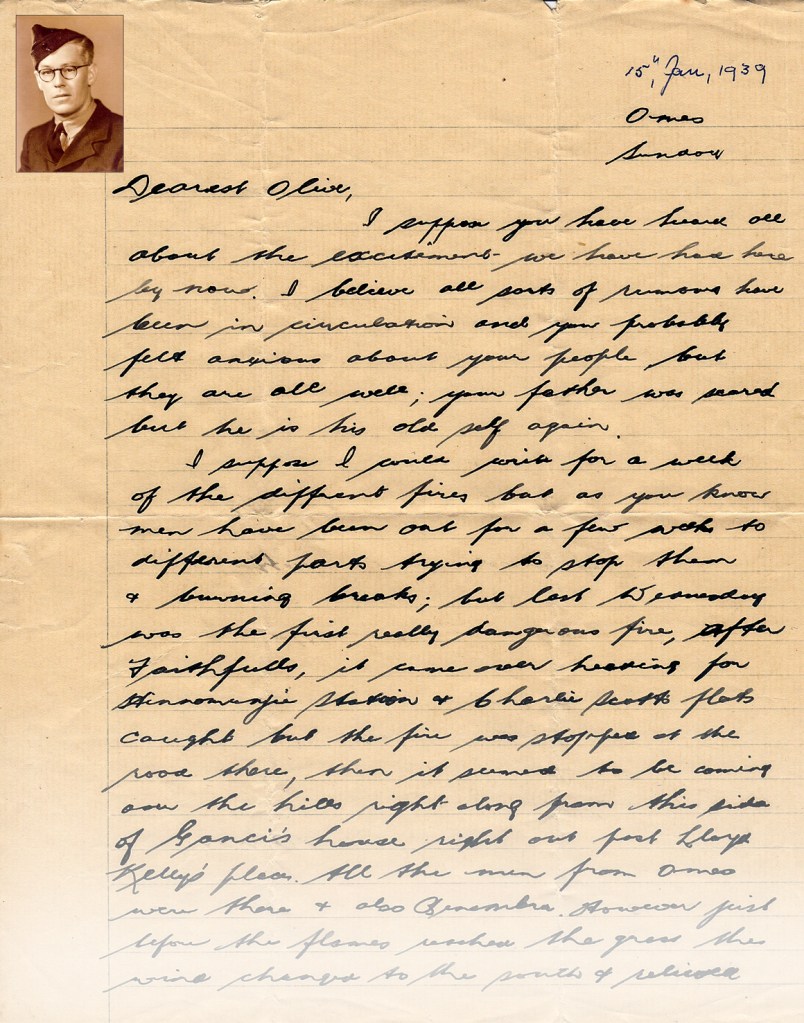 15th, Jan, 1939
Omeo
Sunday
Dearest Olive,
I suppose you have heard all
about the excitement we have had here
by now. I believe all sorts of rumours have
been in circulation and you probably
felt anxious about your people, but
they are all well; your father was scared
but he is his old self again.
I suppose I could write for a week
of the different fires but as you know
men have been out for a few weeks to
different parts trying to stop them
& burning breaks; but last Wednesday
was the first really dangerous fire, after
Faithfulls, it came over heading for
Hinnomunjie Station & Charlie Scotts flats
caught but the fire was stopped at the
road there, then it seemed to be coming
over the hills right along from this side
of house right out past Lloyd
Kelly's place. All the men from Omeo
were there & also Benambra. However just
before the flames reached the grass the
wind changed to the south & relieved